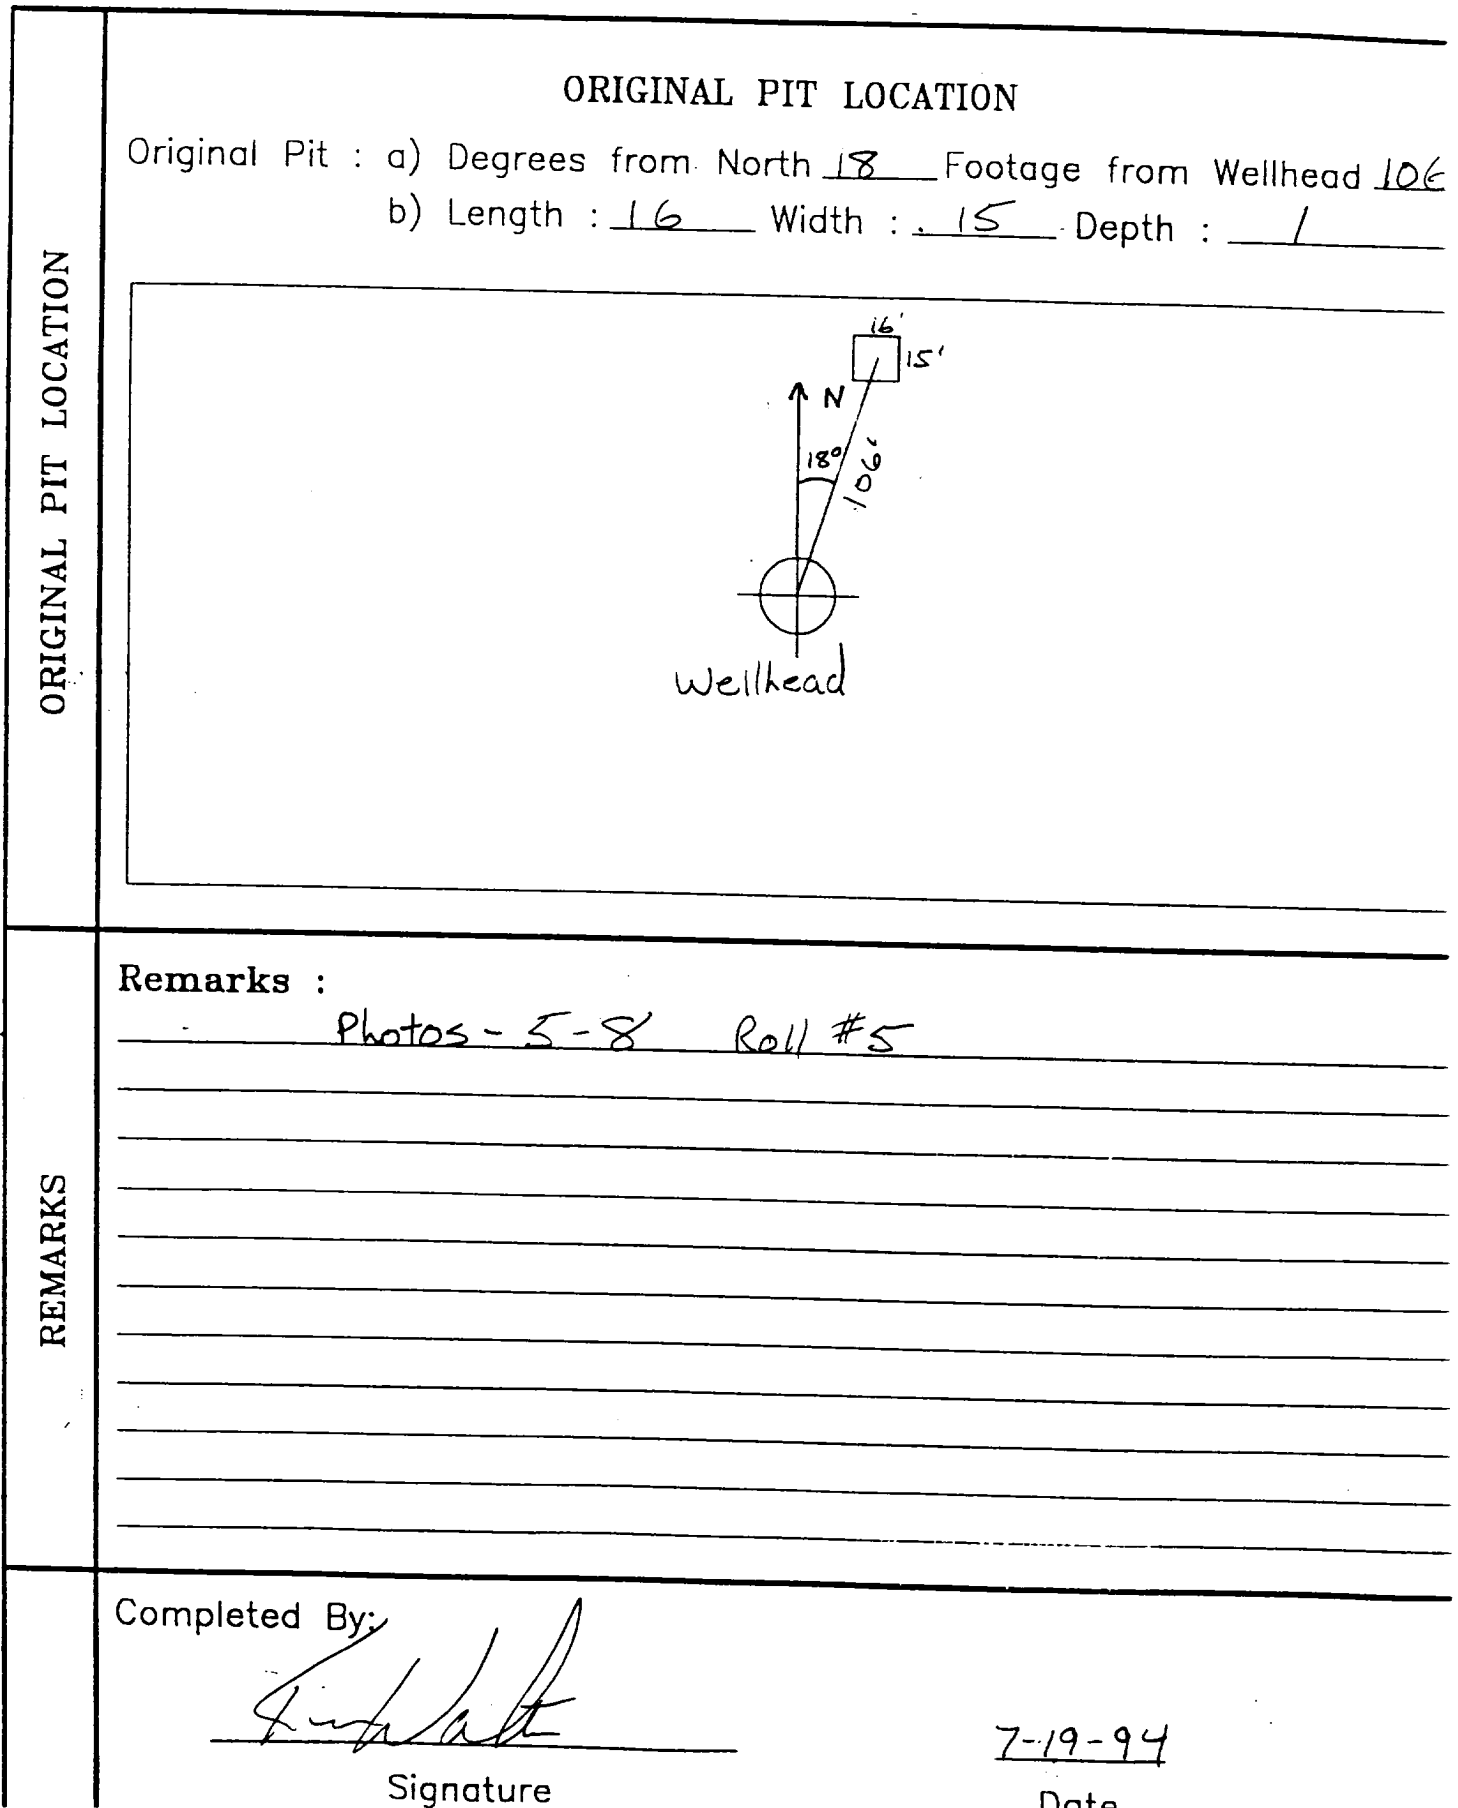 ORIGINAL PIT LOCATION
ORIGINAL PIT LOCATION
Original Pit : a) Degrees from North 18 Footage from Wellhead 106
b) Length : 16 Width : 15 Depth : 1
16'
15'
N
18°
106'
Wellhead
REMARKS
Remarks :
Photos - 5-8 Roll #5
Completed By:
7-19-94
Signature
Date